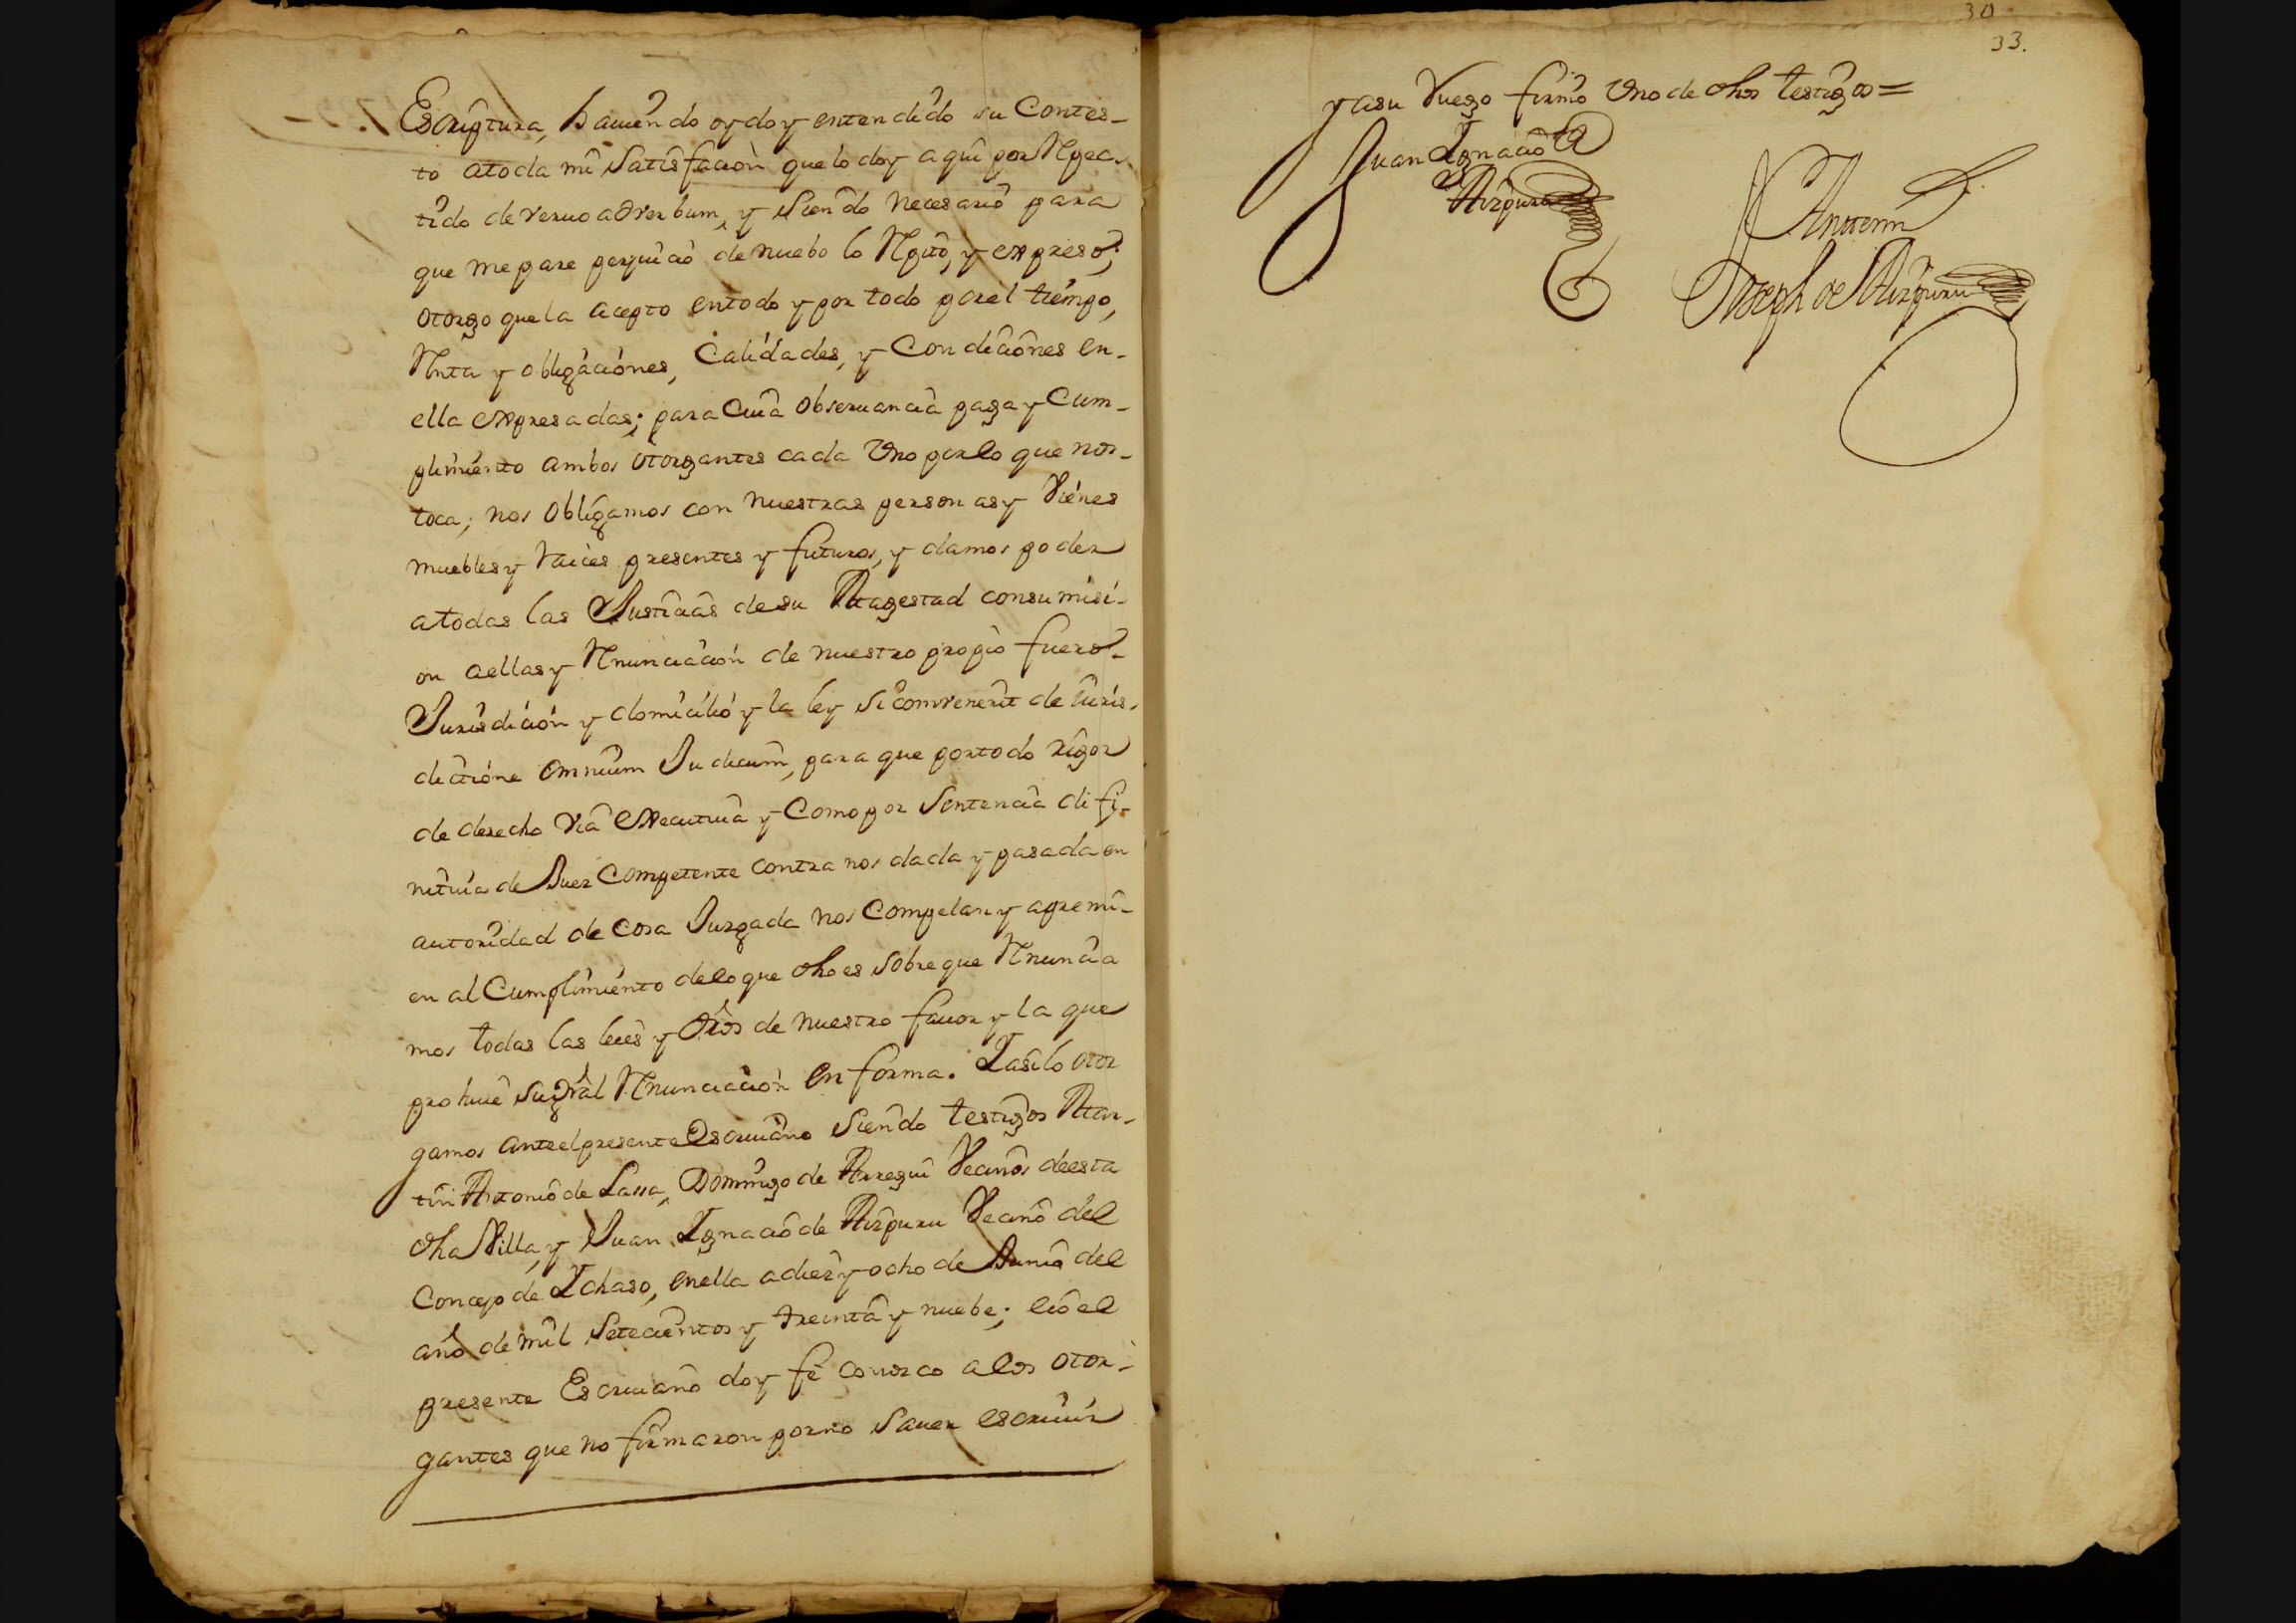 Escriptura, hauiendo oydo y entendido su Contes-
to atoda mi Satisfacion que lo doy aqui por Repea-
tido de veruo adverbum, y siendo necesario para
que me pare perjuicio de nuebo lo Repito, y expreso;
otorgo que la acepto entodo y por todo por el tiempo,
Renta y obligaciones, Calidades, y Condiciones en-
ella expresadas; para Cuia obseruancia paga y Cum-
plimiento ambos otorgantes cada Uno por lo que nos-
toca; nos obligamos con nuestras personas y Vienes
muebles y raices presentes y futuros, y damos poder
atodas las Justicias de su Magestad consumisi-
on aellas y Renunciacion de nuestro propio fuero-
Jurisdicion y domicilio y la ley Si convenerit de iuris-
dictione omnium Judicum, para que portodo rigor
de derecho via executiua y Como por Sentencia difi-
nitiuia de Juez Competente contra nos dada y pasada en
autoridad de cosa Juzgada nos Compelan y apremi-
en al Cumplimiento deloque dho es sobreque Renuncia
mos todas las leies y dros de nuestro fauor y la que
prohiue su gral Renunciacion en forma. Y asilo otor
gamos ante el presente Escriuano Siendo testigos Mar-
tin Antonio de Lassa, Domingo de Arregui Vecinos deesta
dha Villa, y Juan Ignacio de Aizpuru Vecino del
Concejo de Ichaso, enella adiez y ocho de Junio del
año de mil Setecientos y treinta y nuebe; e io el
presente Escriuano doy fe conozco a los otor-
gantes que no firmaron porno Sauer escriuir
30
33.
y asu Ruego firmó Uno de dhos testigos =
Juan Ignacio de
Aizpuru
Antemi
Joseph de Aizpuru